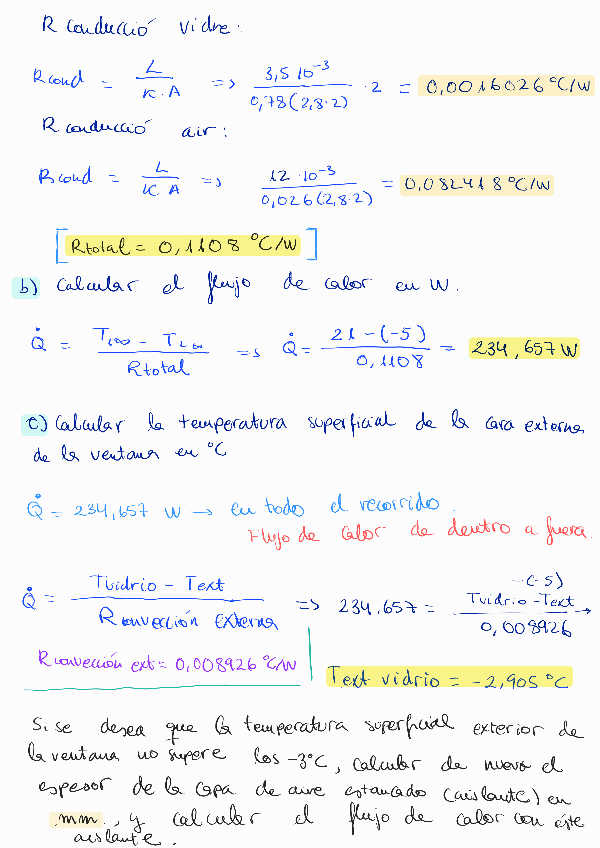 R conducció vidre:
Rcond = L / K·A => 3,5 10⁻³ / 0,78(2,8·2) · 2 = 0,0016026 °C/W
R conducció air:
Rcond = L / K·A => 12·10⁻³ / 0,026(2,8·2) = 0,082418 °C/W
[Rtotal = 0,1108 °C/W]
b) Calcular el flujo de calor en W.
Q̇ = T₁∞ - T₂∞ / Rtotal => Q̇ = 21-(-5) / 0,1108 = 234,657 W
c) Calcular la temperatura superficial de la cara externa
de la ventana en °C
Q̇ = 234,657 W → en todo el recorrido.
Flujo de calor de dentro a fuera.
Q̇ = Tvidrio - Text / Rconvección externa => 234,657 = Tvidrio - Text / 0,008926 -(-5)
Rconvección ext = 0,008926 °C/W
Text vidrio = -2,905 °C
Si se desea que la temperatura superficial exterior de
la ventana no supere los -3°C, calcular de nuevo el
espesor de la capa de aire estancado (aislante) en
mm, y calcular el flujo de calor con éste
aislante.